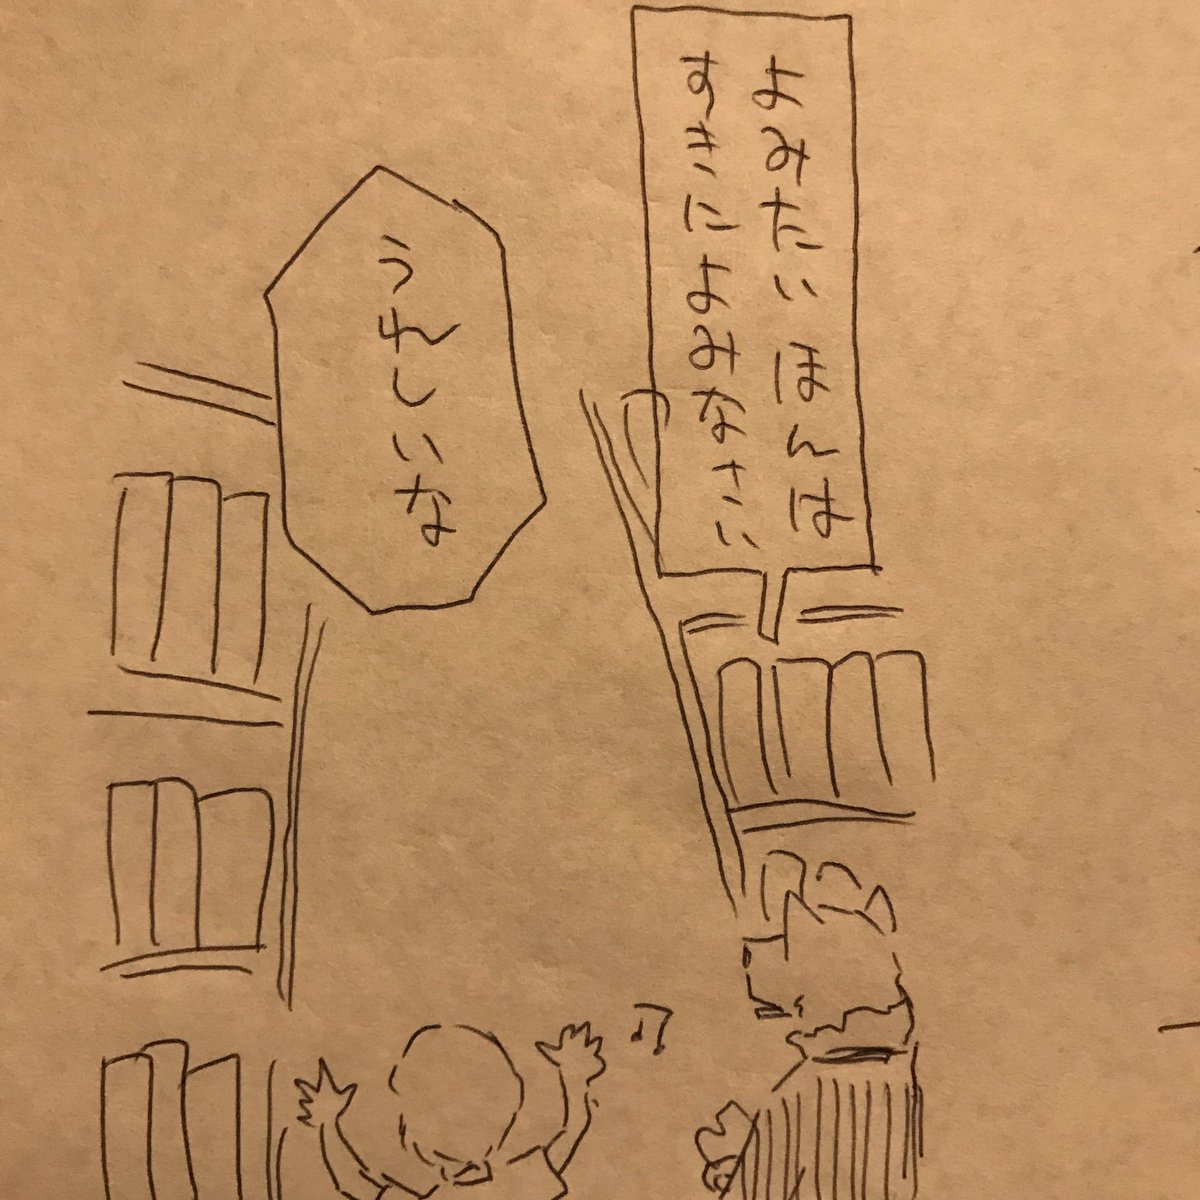 よみたい ほんは
すきに よみなさい
うれしいな